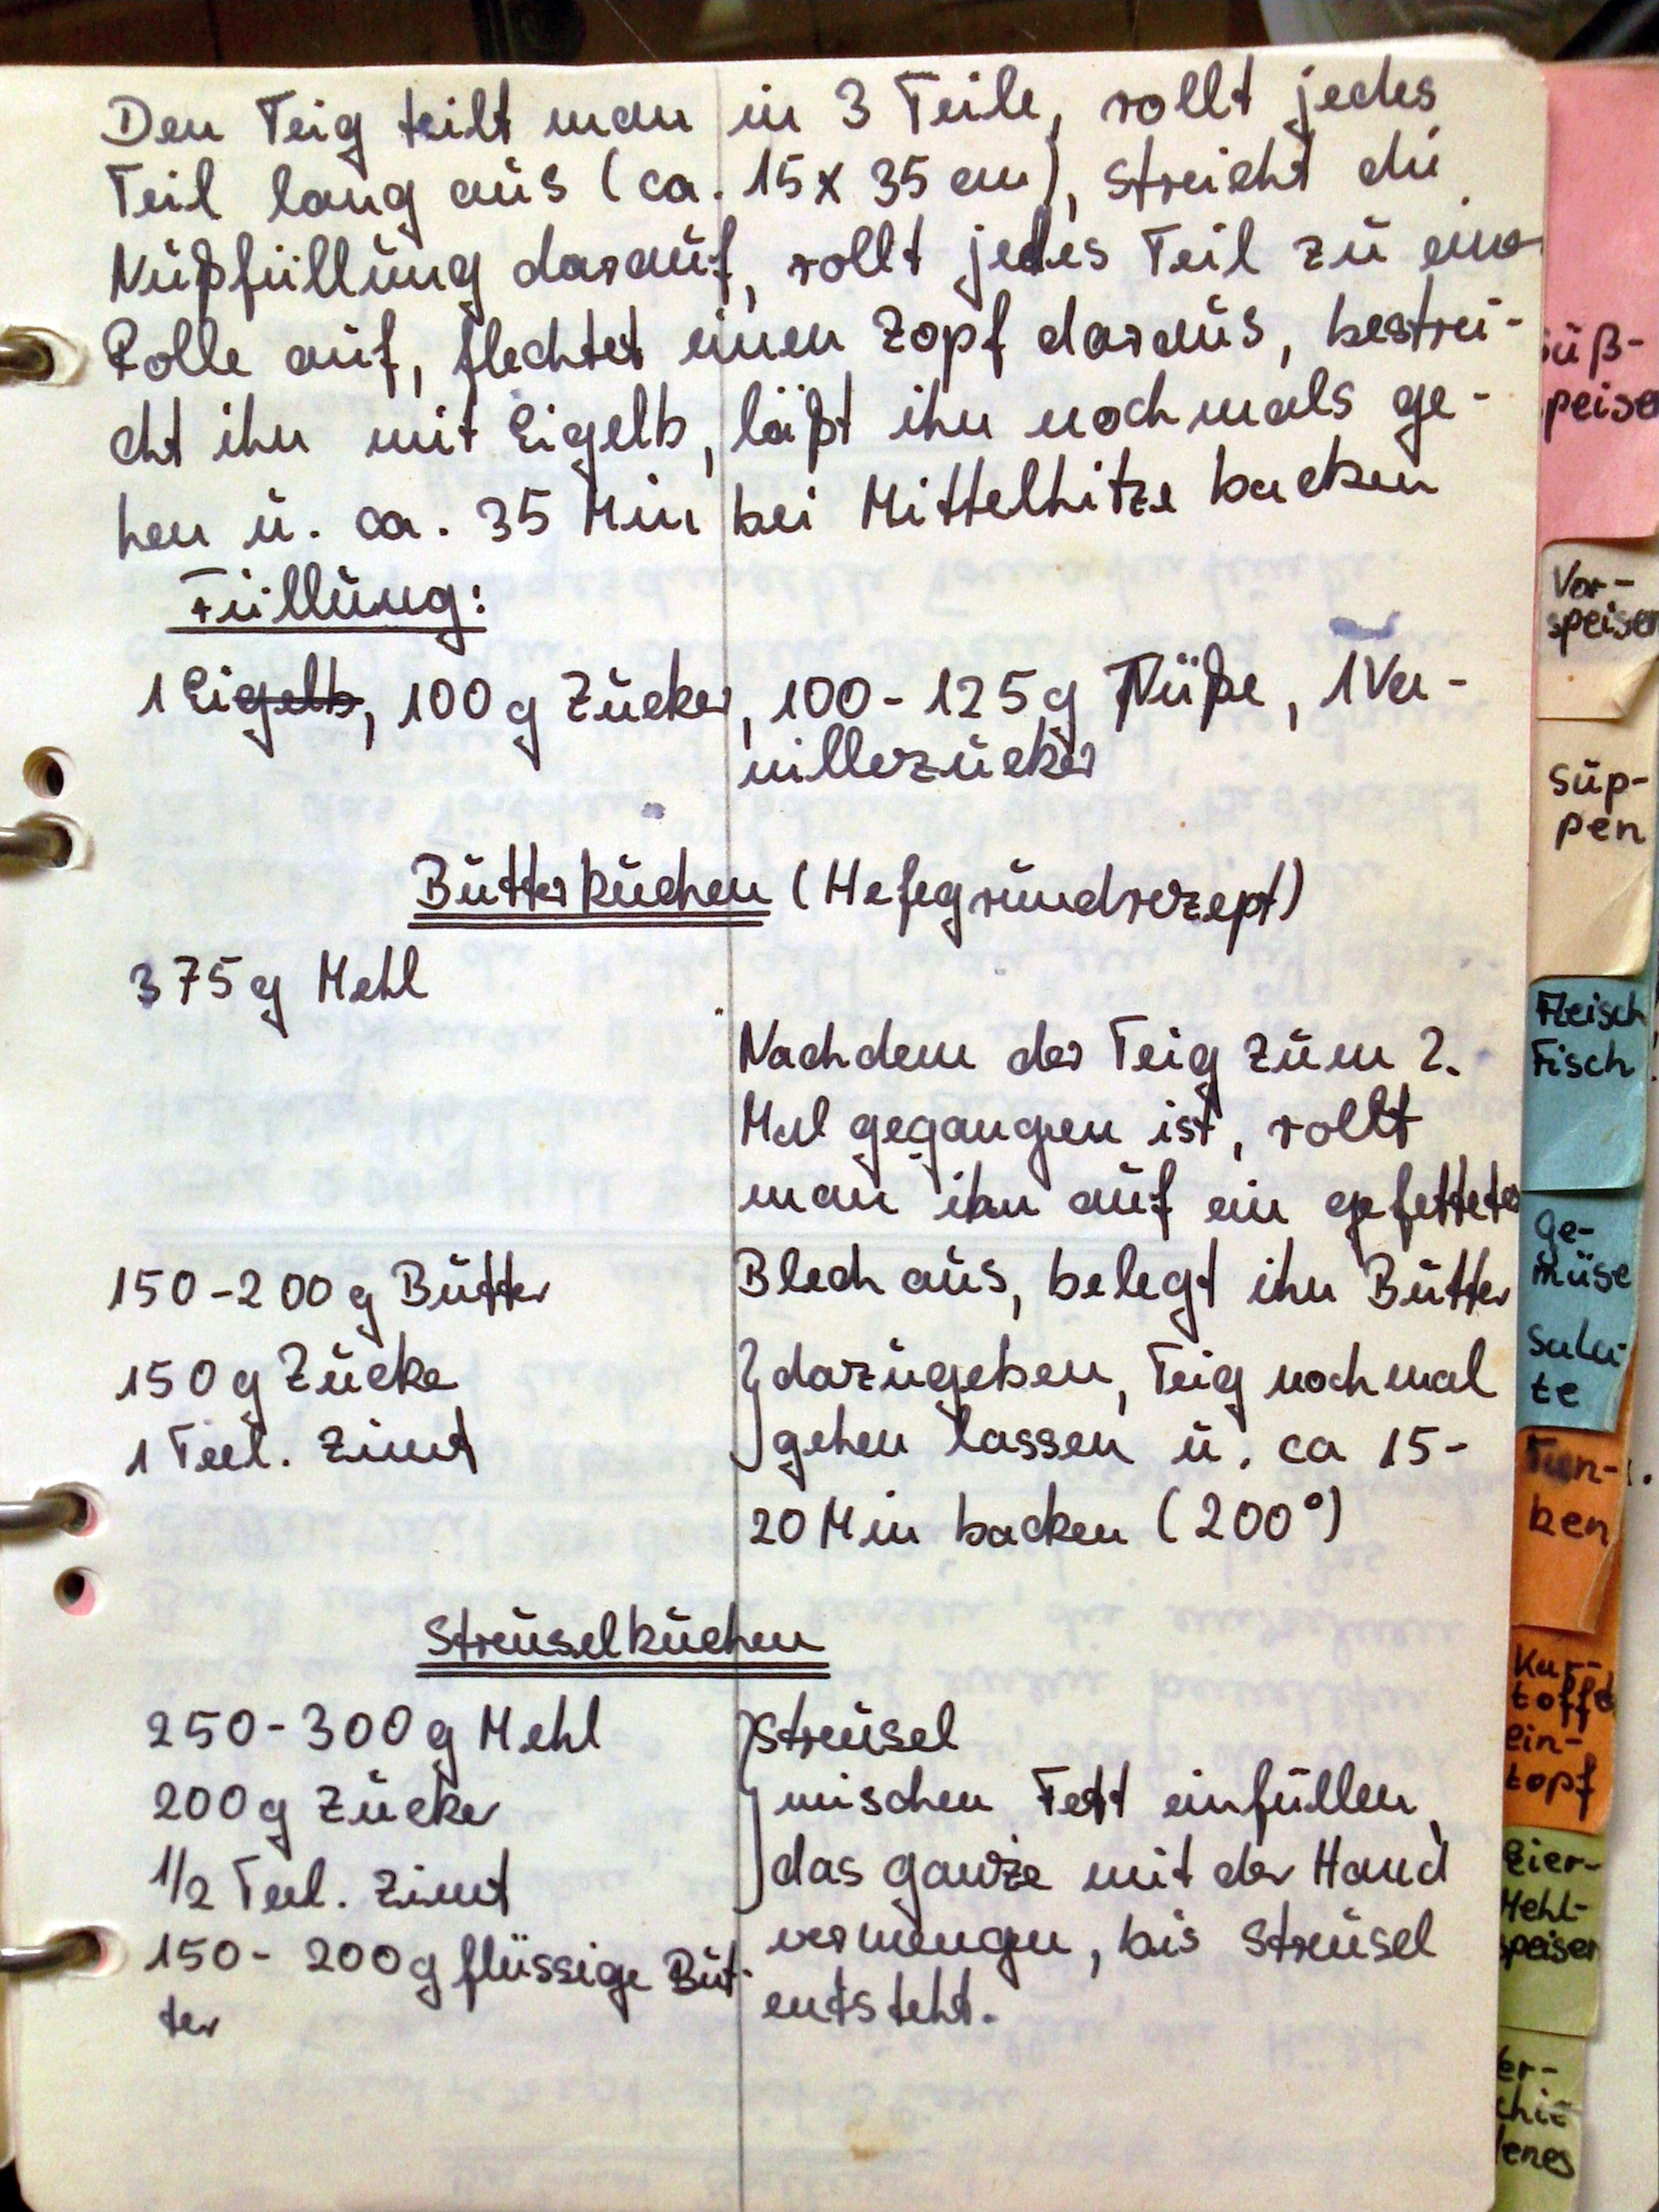 Den Teig teilt man in 3 Teile, rollt jedes
Teil lang aus (ca. 15x 35 cm), streicht die
Nußfüllung darauf, rollt jedes Teil zu einer
Rolle auf, flechtet einen Zopf daraus, bestrei-
cht ihn mit Eigelb, läßt ihn nochmals ge-
hen u. ca. 35 Min bei Mittelhitze backen
Füllung:
1 Eigelb, 100g Zucker, 100-125g Nüße, 1 Va-
nillezucker
Butterkuchen (Hefegrundrezept)
375g Mehl
Nachdem der Teig zum 2.
Mal gegangen ist, rollt
man ihn auf ein gefettetes
150-200g Butter Blech aus, belegt ihn Butter
150g Zucke dazugeben, Teig nochmal
1 Teel. Zimt gehen lassen u. ca 15-
20 Min backen (200°)
Streuselkuchen
250-300g Mehl Streusel
200g Zucker mischen Fett einfüllen,
1/2 Teel. Zimt das ganze mit der Hand
150- 200g flüssige But- vermengen, bis Streusel
ter entsteht.
süß-
speise
Vor-
speisen
Sup-
pen
Fleisch
Fisch
Ge-
müse
Sala-
te
Tun-
ken
Kar-
toffel
ein-
topf
Eier-
Mehl-
speisen
Ver-
schie-
denes